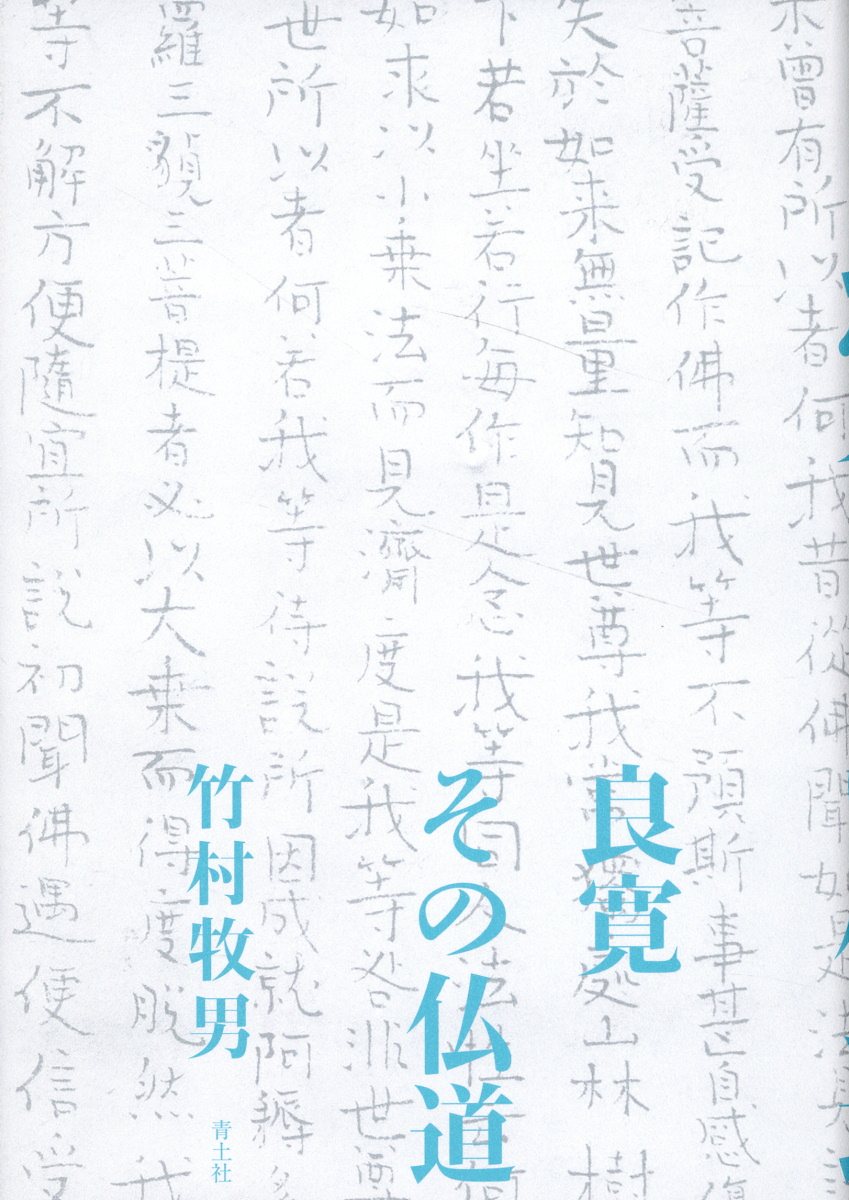 未曾有所以者何我昔從佛聞如是法見
菩薩受記作佛而我等不預斯事甚自感傷
失於如来無量知見世尊我常獨處山林樹
下若坐若行每作是念我等同入法性云何
如来以小乗法而見濟度是我等咎非世尊
世所以者何若我等待說所因成就阿耨多
羅三藐三菩提者必以大乗而得度脱然我
等不解方便隨宜所說初聞佛遇便信受
良寛
その仏道
竹村牧男
青土社